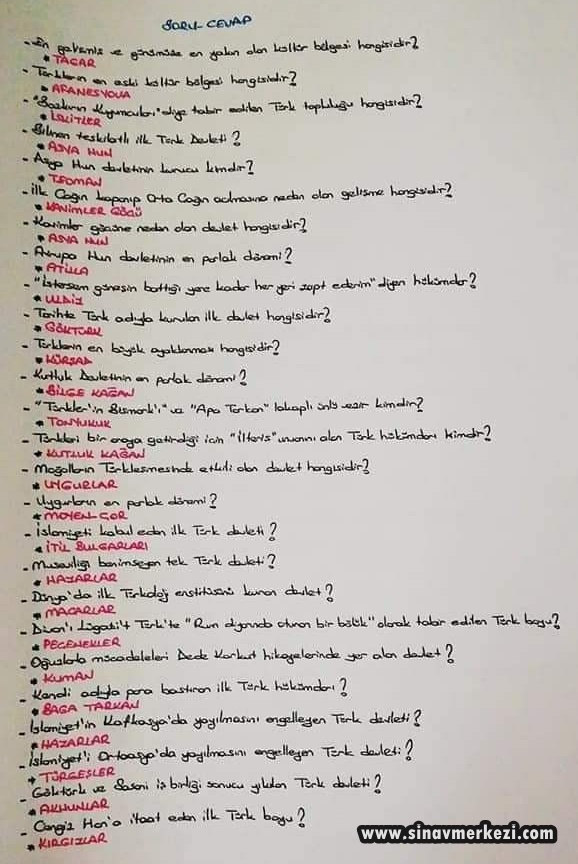 SORU-CEVAP
- En gelişmiş ve günümüze en yakın olan kültür bölgesi hangisidir?
* TAGAR
- Türklerin en eski kültür bölgesi hangisidir?
* AFANESYOVA
- "Bozkırın Kuyumcuları" diye tabir edilen Türk topluluğu hangisidir?
* İSKİTLER
- Bilinen teşkilatlı ilk Türk Devleti?
* ASYA HUN
- Asya Hun devletinin kurucu kimdir?
* TEOMAN
- İlk Çağın kapanıp Orta Çağın açılmasına neden olan gelişme hangisidir?
* KAVİMLER GÖÇÜ
- Kavimler göçüne neden olan devlet hangisidir?
* ASYA HUN
- Avrupa Hun devletinin en parlak dönemi?
* ATİLLA
- "İstersem güneşin battığı yere kadar her yeri zapt ederim" diyen hükümdar?
* ULDIZ
- Tarihte Türk adıyla kurulan ilk devlet hangisidir?
* GÖKTÜRK
- Türklerin en büyük ayaklanması hangisidir?
* KÜRŞAD
- Kutluk Devletinin en parlak dönemi?
* BİLGE KAĞAN
- "Türkler'in Bismark'ı" ve "Apa Tarkan" lakaplı ünlü vezir kimdir?
* TONYUKUK
- Türkleri bir araya getirdiği için "İlteriş" unvanını alan Türk hükümdarı kimdir?
* KUTLUK KAĞAN
- Moğolların Türkleşmesinde etkili olan devlet hangisidir?
* UYGURLAR
- Uygurların en parlak dönemi?
* MOYEN-ÇOR
- İslamiyeti kabul eden ilk Türk devleti?
* İTİL BULGARLARI
- Museviliği benimseyen tek Türk devleti?
* HAZARLAR
- Dünya'da ilk Türkoloji enstitüsünü kuran devlet?
* MACARLAR
- Divan'ı Lügati't Türk'te "Rum diyarında oturan bir bölük" olarak tabir edilen Türk boyu?
* PEÇENEKLER
- Oğuzlarla mücadeleleri Dede Korkut hikayelerinde yer alan devlet?
* KUMAN
- Kendi adıyla para bastıran ilk Türk hükümdarı?
* BAGA TARKAN
- İslamiyet'in Kafkasya'da yayılmasını engelleyen Türk devleti?
* HAZARLAR
- İslamiyet'i Ortaasya'da yayılmasını engelleyen Türk devleti?
* TÜRGEŞLER
- Göktürk ve Sasani iş birliği sonucu yıkılan Türk devleti?
* AKHUNLAR
- Cengiz Han'a itaat eden ilk Türk boyu?
* KIRGIZLAR
www.sinavmerkezi.com